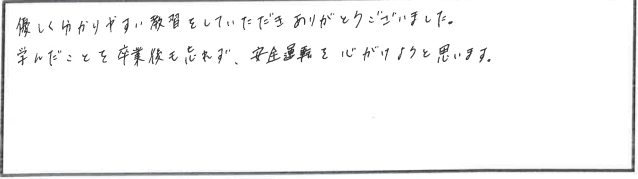 優しく分かりやすい教習をしていただきありがとうございました。
学んだことを卒業後も忘れず、安全運転を心がけようと思います。